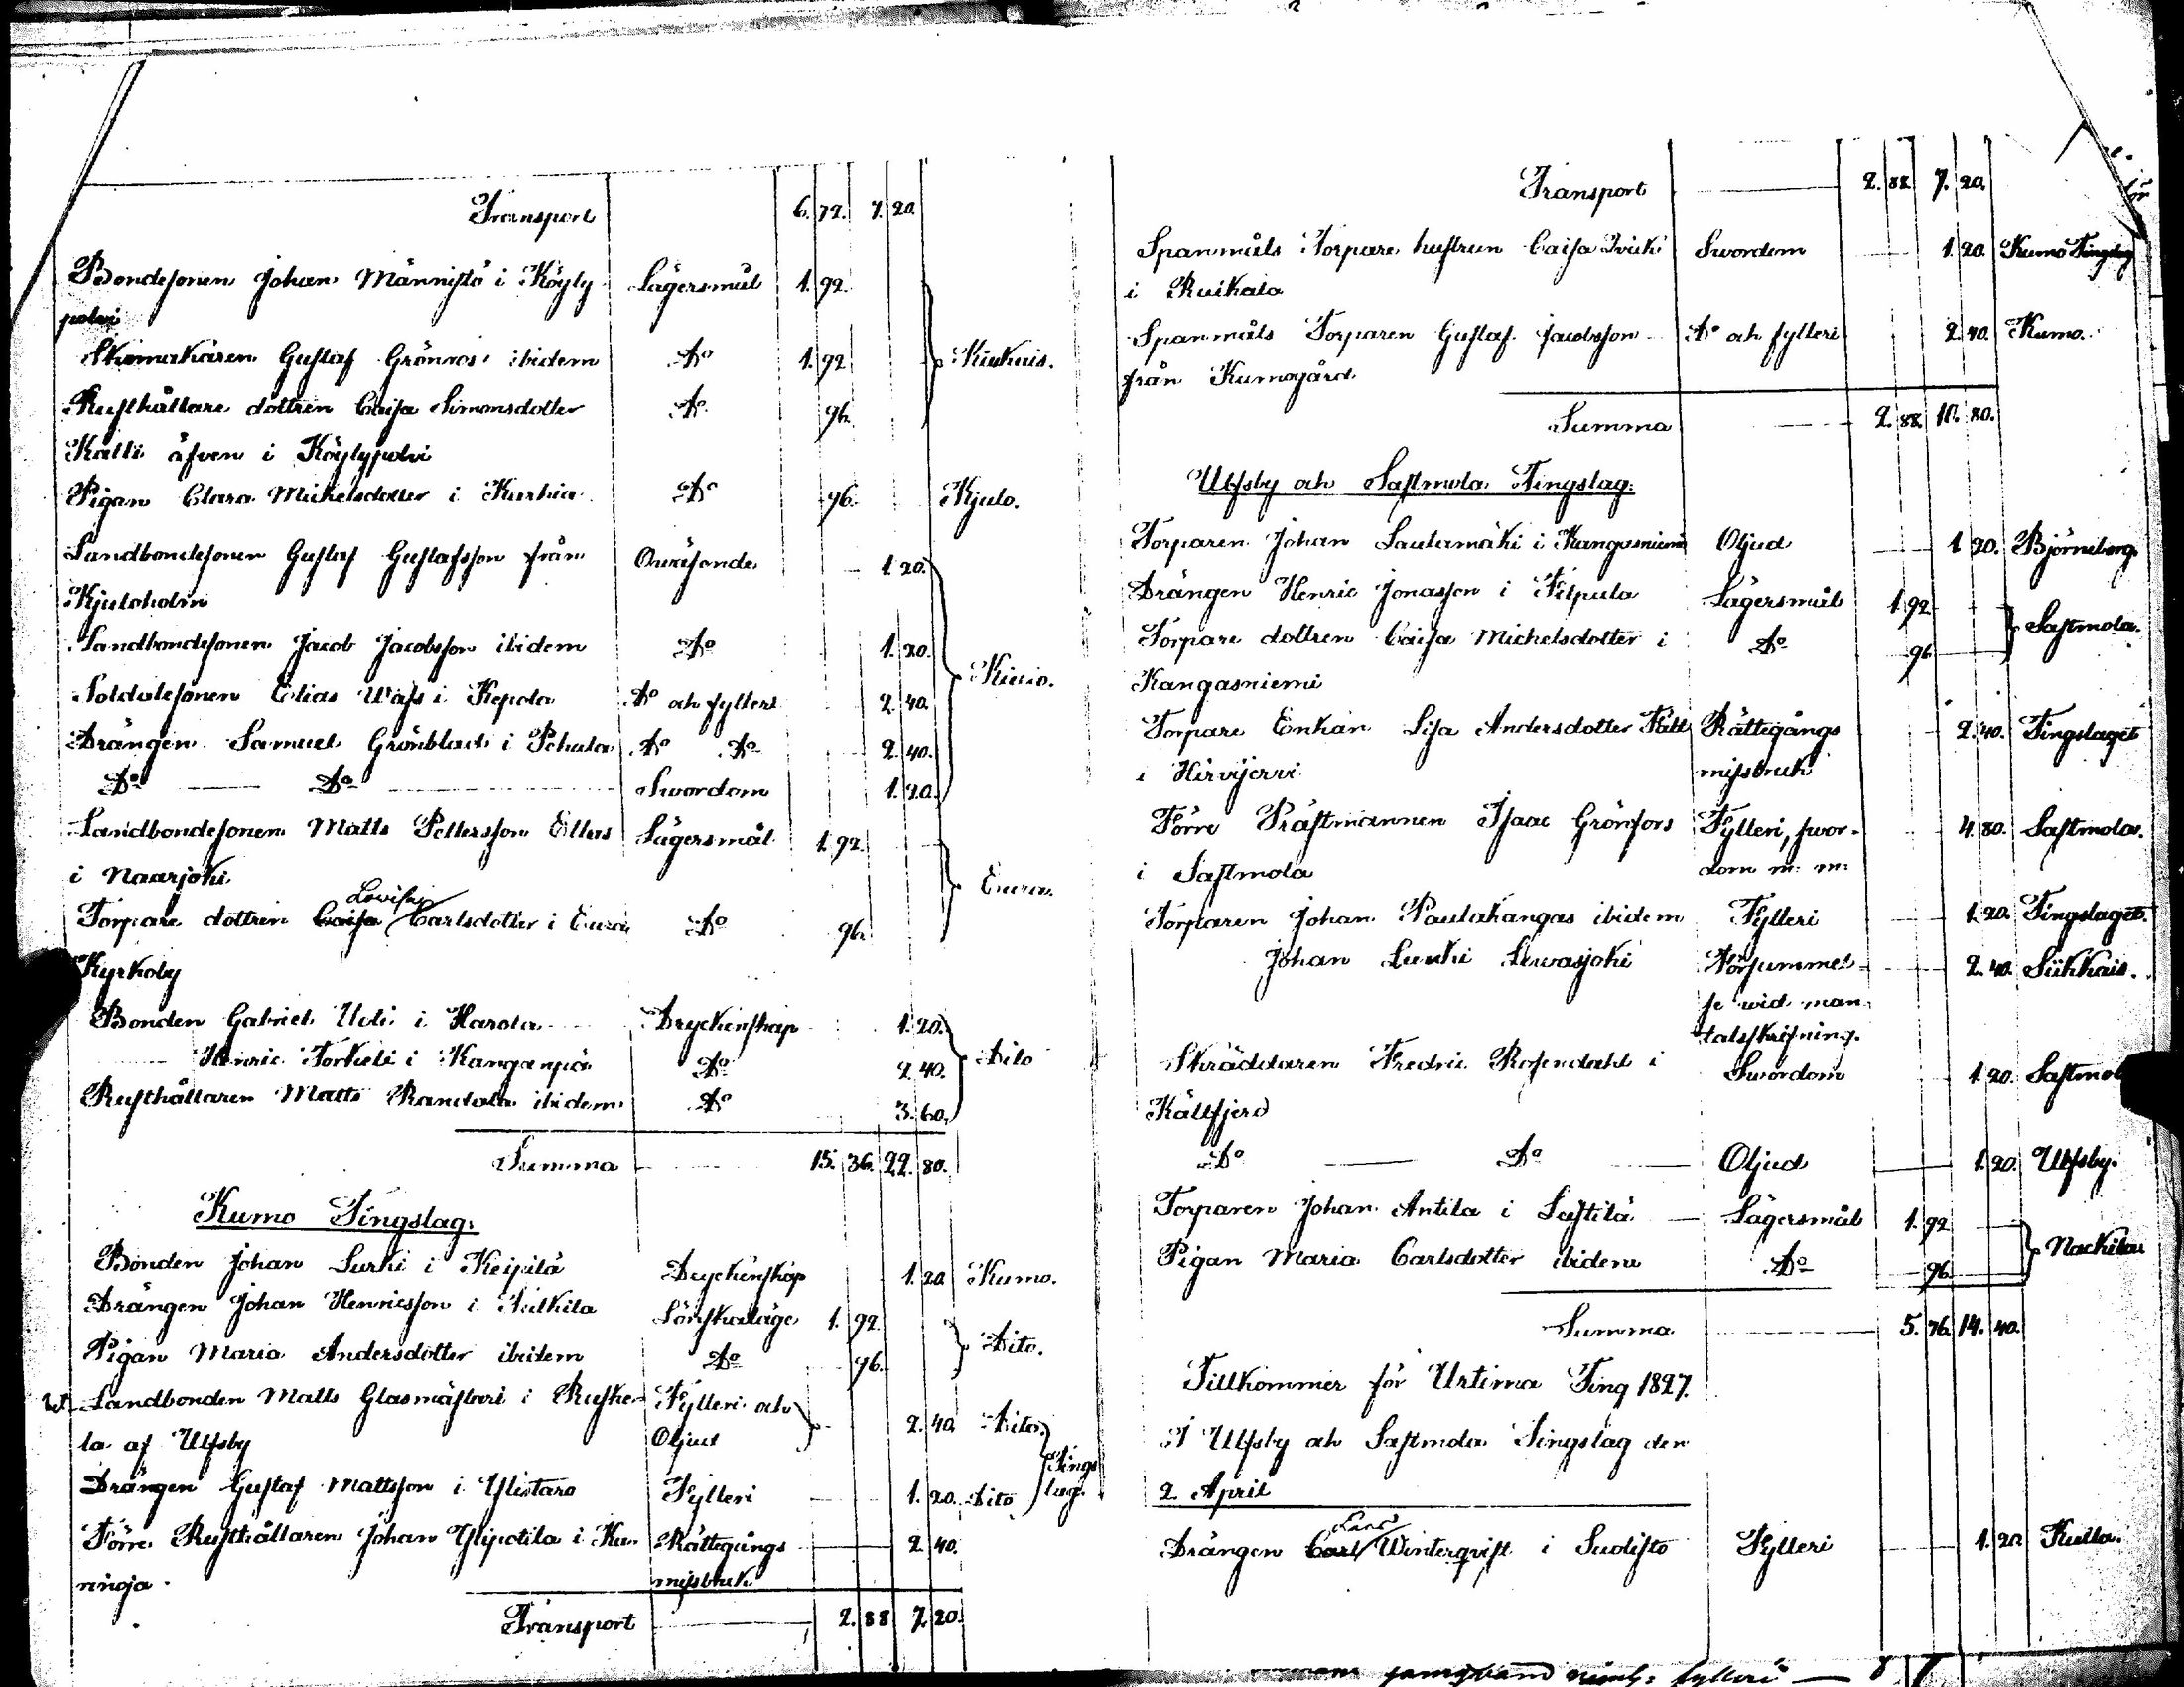 Transport 6. 72. 7. 20.
Bondesonen Johan Männistö i Köyly Lägersmål 1. 92.
polvi
Skomakaren Gustaf Grönroos ibidem Do 1. 92 Kiukais.
Rusthållare dottren Caisa Simonsdotter Do 96.
Kalli äfven i Köylypolvi
Pigan Clara Michelsdotter i Kurkia Do 96. Kjulo.
Landbondesonen Gustaf Gustafsson från Oväsende 1. 20.
Kjuloholm
Landbondesonen Jacob Jacobsson ibidem Do 1. 20.
Soldatesonen Elias Wass i Kepola Do och fylleri 2. 40.
Drängen Samuel Grönblad i Pehula Do Do 2. 40.
Do Do Swordom 1. 20.
Landbondesonen Matts Pettersson Ellas Lägersmål 1. 92. Eura.
i Naarjoki
Lovisa
Torpare dottren Caisa Carlsdotter i Eura Do 96.
Kyrkoby
Bonden Gabriel Uoti i Harola Dryckenskap 1. 20.
Henric Torkeli i Kanganpä Do 2. 40. Dito
Rusthållaren Matts Randala ibidem Do 3. 60.
Summa 15. 36. 22. 80.
Kumo Tingslag.
Bonden Johan Surki i Keipilä Dryckenskap 1. 20. Kumo.
Drängen Johan Henricsson i Lönskaläge 1. 92.
Pigan Maria Andersdotter ibidem Do 96. Dito.
Landbonden Matts Glasmästari i Ruske- Fylleri och 2. 40. Dito
la af Ulfsby Oljud
Drängen Gustaf Mattsson i Ylistaro Fylleri 1. 20. Dito Tings lag.
Förre Rusthållaren Johan Ylipotila i Ku- Rättegångs 2 40.
ninoja missbruk
Transport 2. 88 7. 20.
Transport 2. 88. 7. 20.
Spanmåls Torpare hustrun Caisa Swordom 1. 20. Kumo Tingslag
i Ruikala
Spanmåls Torparen Gustaf Jacobsson Do och fylleri 2. 40. Kumo.
från Kumogård
Summa 2. 88. 10. 80.
Ulfsby och Sastmola Tingslag.
Torparen Johan Lautamäki i Kangasniemi Oljud 1 20. Björneborg.
Drängen Henric Jonasson i Filpula Lägersmål 1. 92 Sastmola.
Torpare dottren Caisa Michelsdotter i Do 96
Kangasniemi
Torpare Enkan Lisa Andersdotter Fält Rättegångs 2. 40. Tingslaget
i Hirvijervi missbruk
Förre Prästmannen Isaac Grönfors Fylleri, swor- 4. 80. Sastmola.
i Sastmola dom m: m:
Torparen Johan Pautakangas ibidem Fylleri 1. 20. Tingslaget.
Johan Lunki Lewasjoki Försummel- 2. 40. Siikkais.
se wid man-
talsskrifning.
Skräddaren Fredric Rosendahl i Swordom 1. 20. Sastmol
Källfjerd
Do Do Oljud 1. 20. Ulfsby.
Torparen Johan Antila i Lastila Lägersmål 1. 92
Pigan Maria Carlsdotter ibidem Do 96. Nackila
Summa 5. 76. 14. 40.
Tillkommer för Urtima Ting 1827.
I Ulfsby och Sastmola Tingslag den
2 April
Drängen Carl Winterqvist i Sudisto Fylleri 1. 20. Kulla.
fylleri